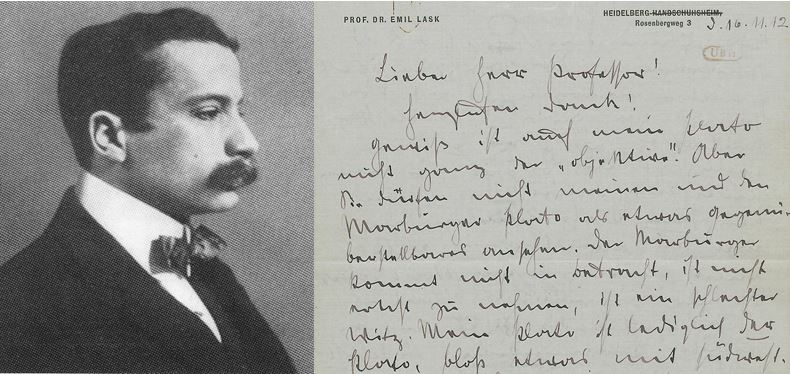 PROF. DR. EMIL LASK
HEIDELBERG-HANDSCHUHSHEIM,
Rosenbergweg 3
16.11.12
Lieber Herr Professor!
Herzlichen Dank!
Gewiß ist auch mein Plato
nicht ganz der „objektive“. Aber
Sie dürfen nicht meinen und den
Marburger Plato als etwas Gegenü-
berstellbares ansehen. Der Marburger
kommt nicht in Betracht, ist nicht
ernst zu nehmen, ist ein schlechter
Witz. Mein Plato ist lediglich der
Plato, bloß etwas mit südwest.